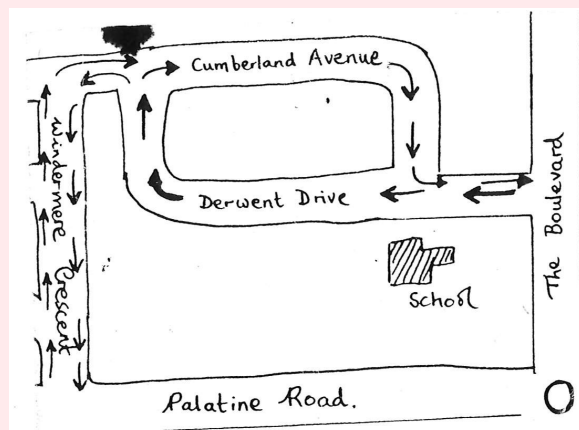 Cumberland Avenue
Windermere Crescent
Derwent Drive
The Boulevard
School
Palatine Road.